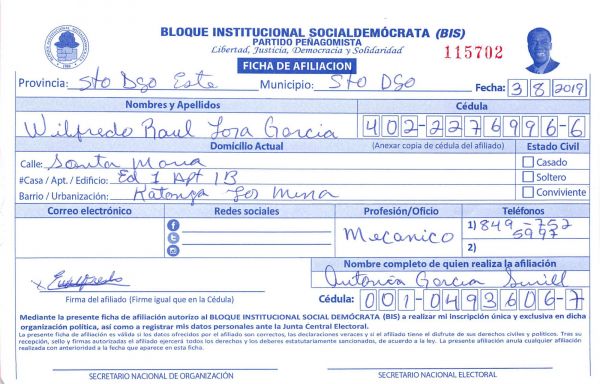 BLOQUE INSTITUCIONAL SOCIALDEMÓCRATA (BIS)
PARTIDO PEÑAGOMISTA
Libertad, Justicia, Democracia y Solidaridad
115702
FICHA DE AFILIACION
Provincia: Sto Dgo Este Municipio: Sto Dgo Fecha: 3/8/2019
Nombres y Apellidos Cédula
Wilfredo Raul Lora Garcia 402-2276996-6
Domicilio Actual (Anexar copia de cédula del afiliado) Estado Civil
Calle: Santa Maria Casado
#Casa / Apt. / Edificio: Ed 1 Apt 1B Soltero
Barrio / Urbanización: Katanga Los Mina Conviviente
Correo electrónico Redes sociales Profesión/Oficio Teléfonos
Mecanico 1) 849-752
5997
2)
Nombre completo de quien realiza la afiliación
Garcia
Firma del afiliado (Firme igual que en la Cédula) Cédula: 001-0493606-7
Mediante la presente ficha de afiliación autorizo al BLOQUE INSTITUCIONAL SOCIAL DEMÓCRATA (BIS) a realizar mi inscripción única y exclusiva en dicha
organización política, así como a registrar mis datos personales ante la Junta Central Electoral.
La presente ficha de afiliación es válida si los datos ofrecidos por el afiliado son correctos, las declaraciones veraces y si el afiliado tiene el disfrute de sus derechos civiles y políticos. Tras su
recepción, sello y firmas autorizadas el afiliado ejercerá todos los derechos y los deberes estatutariamente sancionados, de acuerdo a la ley. La presente afiliación anula cualquier afiliación
realizada con anterioridad a la fecha que aparece en esta ficha.
SECRETARIO NACIONAL DE ORGANIZACIÓN SECRETARIO NACIONAL ELECTORAL